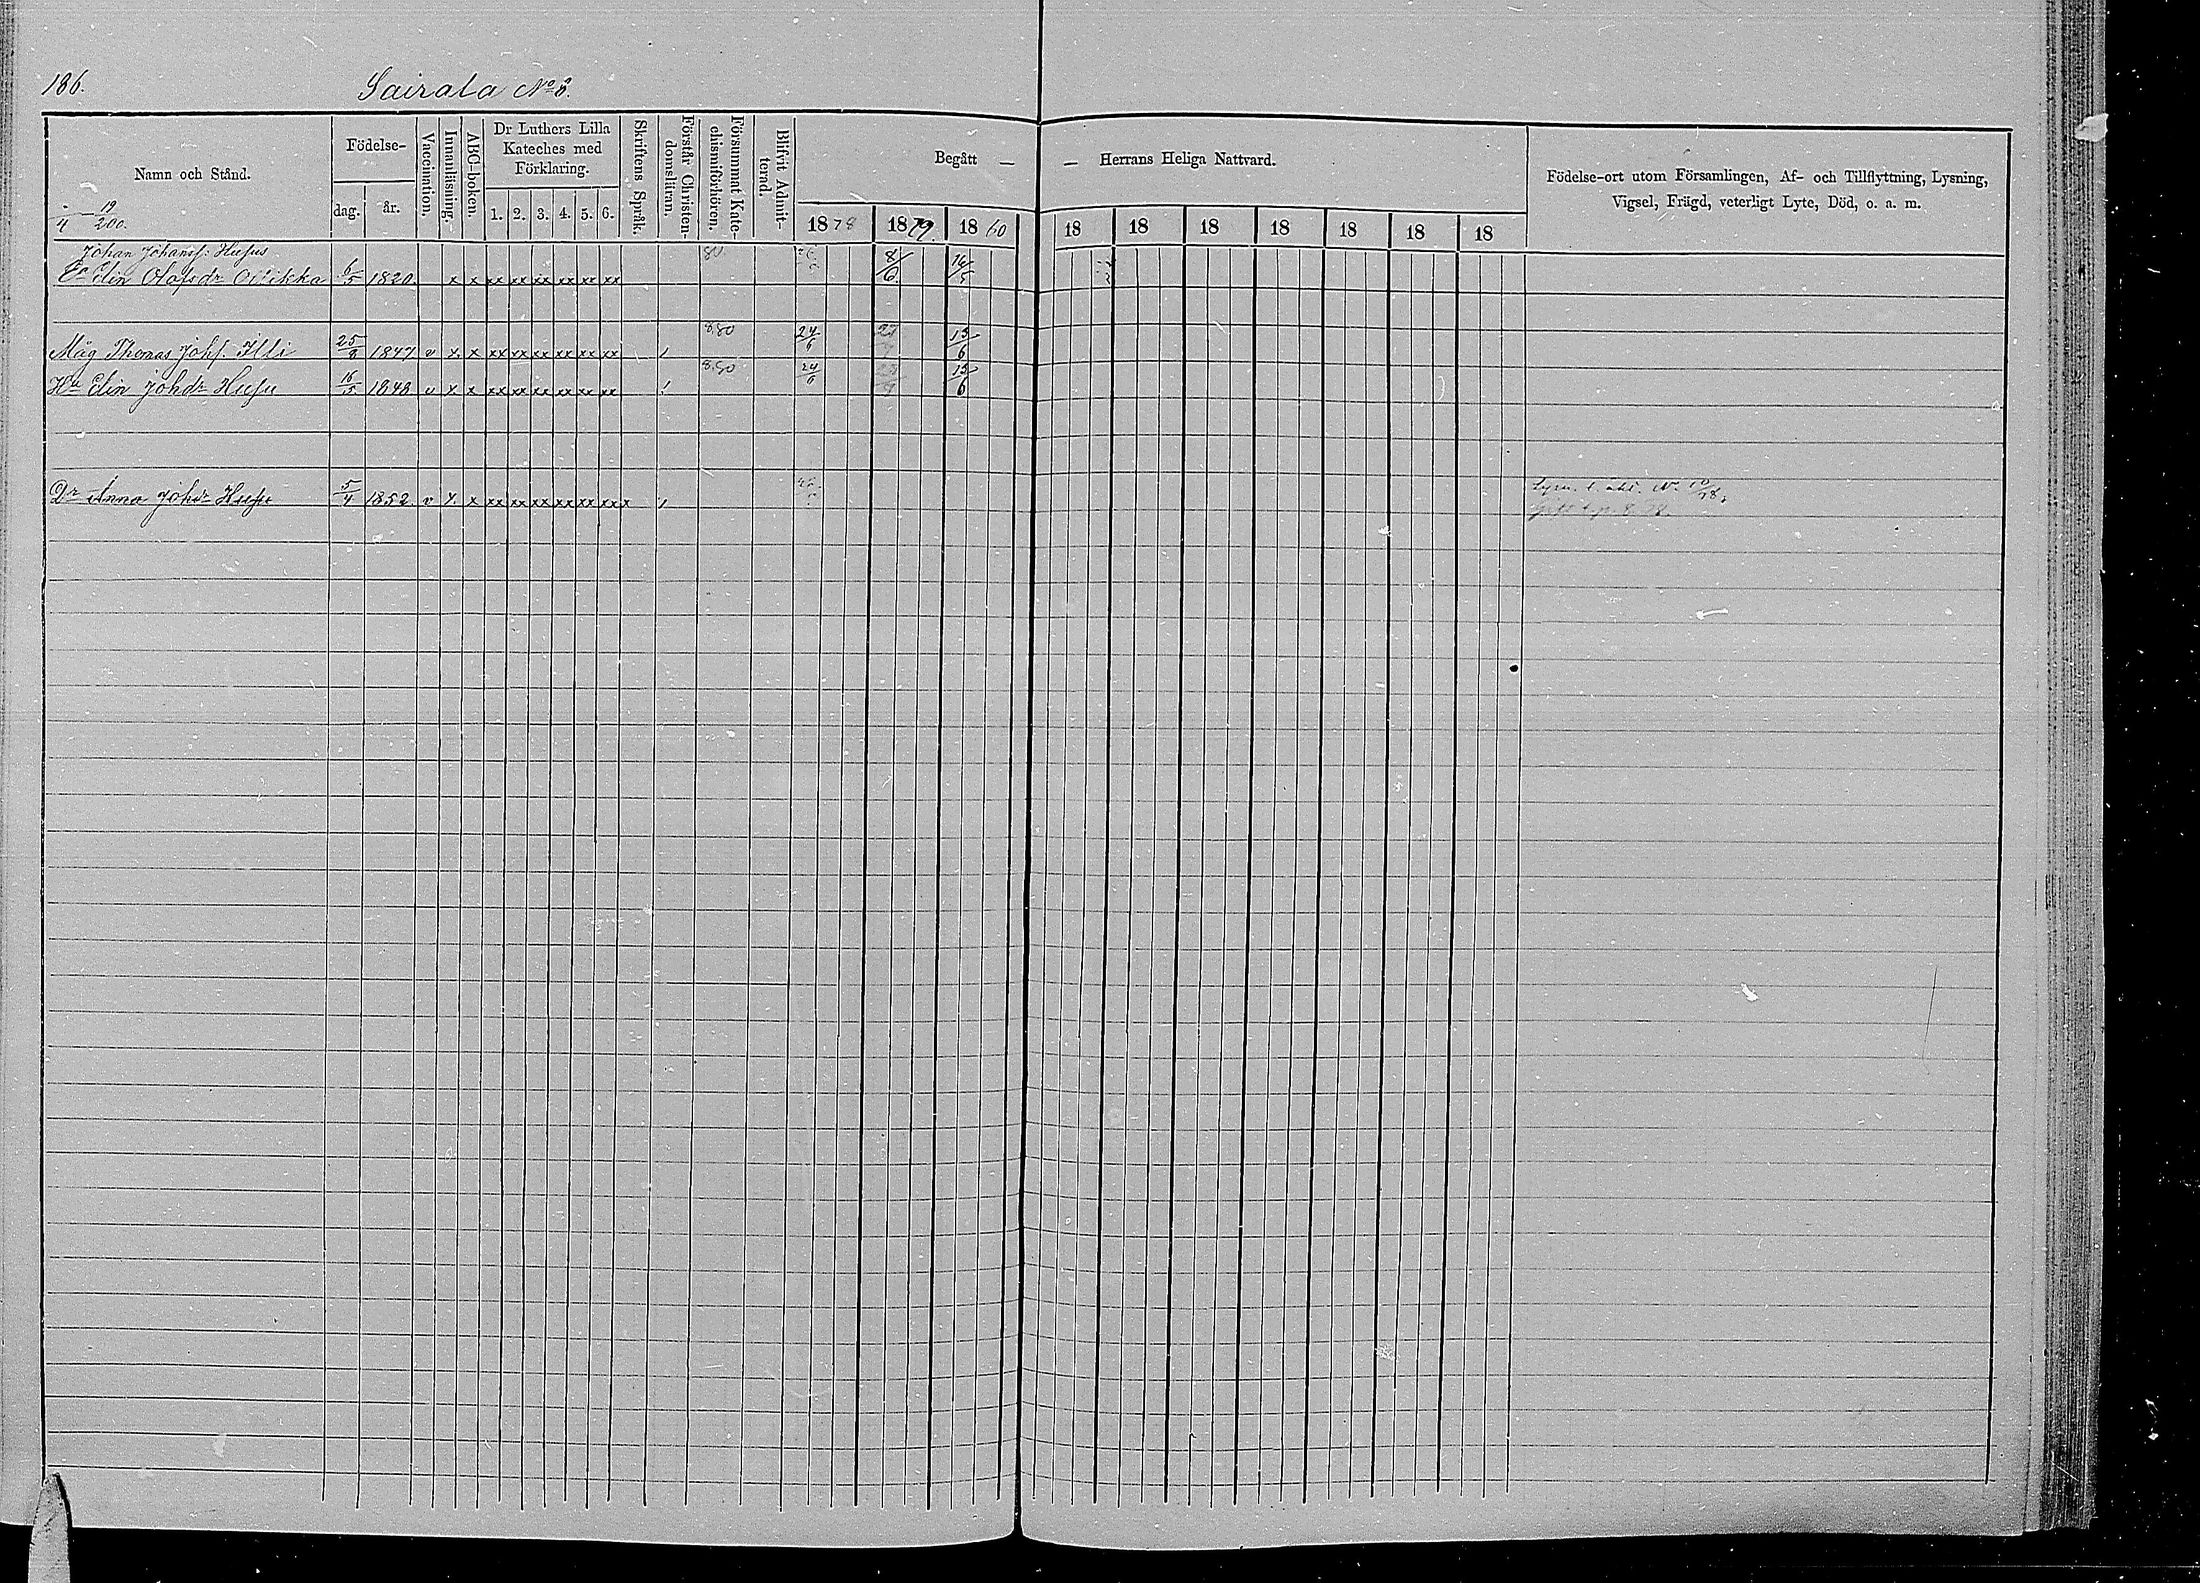 186.
Sairala No 8.
Namn och Stånd.
19
4 200.
Födelse-
dag.
år.
Vaccination.
Innanläsning.
ABC-boken.
Dr Luthers Lilla
Kateches med
Förklaring.
1. 2. 3. 4. 5. 6.
Skriftens Språk.
Förstår Christen-
domsläran.
Försummat Kate-
chismiförhören.
Blifvit Admit-
terad.
Begått —
1878 1879. 1860
— Herrans Heliga Nattvard.
18 18 18 18 18 18 18
Födelse-ort utom Församlingen, Af- och Tillflyttning, Lysning,
Vigsel, Frägd, veterligt Lyte, Död, o. a. m.
Johan Johanss: Husus 80 8/6
Ea Elin Olofsdr 6/5 1820. x x xx xx xx xx xx xx
Måg Thomas Johs. Illi 25/9 1847 v x x xx xx xx xx xx xx / 8.80 24/6 15/6
Hu Elin Johdr Husu 16/5 1848 v x x xx xx xx xx xx xx / 8.80 24/6 15/6
Dr Anna Johdr Husu 5/4 1852. v x x xx xx xx xx xx xx x /